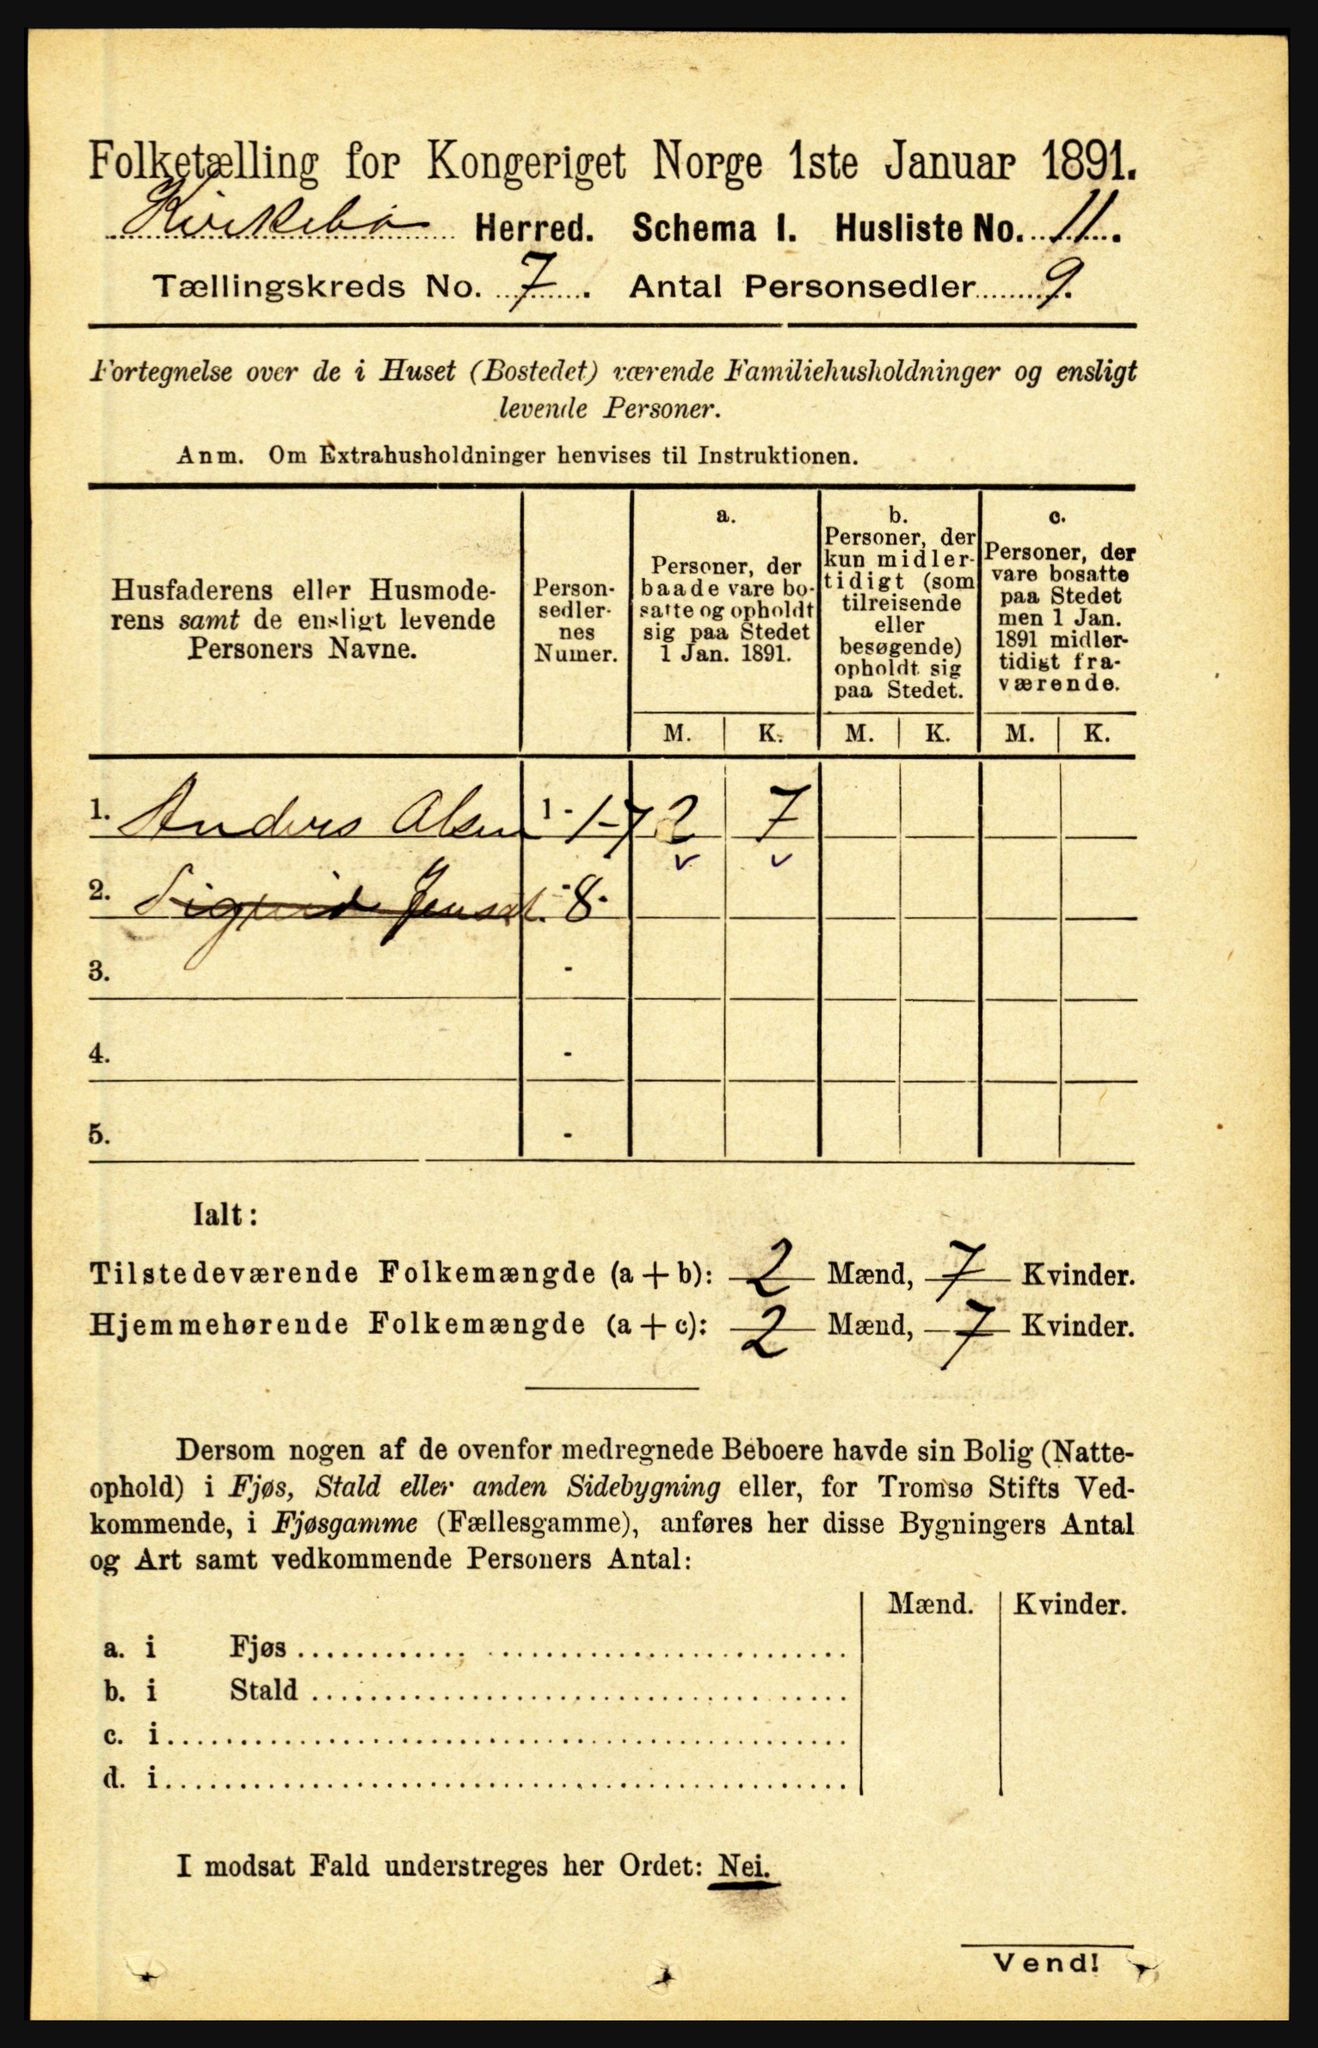 Folketælling for Kongeriget Norge 1ste Januar 1891.
Kirkebø Herred. Schema I. Husliste No. 11.
Tællingskreds No. 7. Antal Personsedler 9.
Fortegnelse over de i Huset (Bostedet) værende Familiehusholdninger og ensligt
levende Personer.
Anm. Om Extrahusholdninger henvises til Instruktionen.
Husfaderens eller Husmode-
rens samt de ensligt levende
Personers Navne.
Person-
sedler-
nes
Numer.
a.
Personer, der
baade vare bo-
satte og opholdt
sig paa Stedet
1 Jan. 1891.
b.
Personer, der
kun midler-
tidigt (som
tilreisende
eller
besøgende)
opholdt sig
paa Stedet.
c.
Personer, der
vare bosatte
paa Stedet
men 1 Jan.
1891 midler-
tidigt fra-
værende.
M. K. M. K. M. K.
1. Anders Olsen 1 - 1-7 2 7
2. Sigrid Jensd. - 8
3. -
4. -
5. -
Ialt:
Tilstedeværende Folkemængde (a + b): 2 Mænd, 7 Kvinder.
Hjemmehørende Folkemængde (a + c): 2 Mænd, 7 Kvinder.
Dersom nogen af de ovenfor medregnede Beboere havde sin Bolig (Natte-
ophold) i Fjøs, Stald eller anden Sidebygning eller, for Tromsø Stifts Ved-
kommende, i Fjøsgamme (Fællesgamme), anføres her disse Bygningers Antal
og Art samt vedkommende Personers Antal:
Mænd. Kvinder.
a. i Fjøs
b. i Stald
c. i
d. i
I modsat Fald understreges her Ordet: Nei.
Vend!